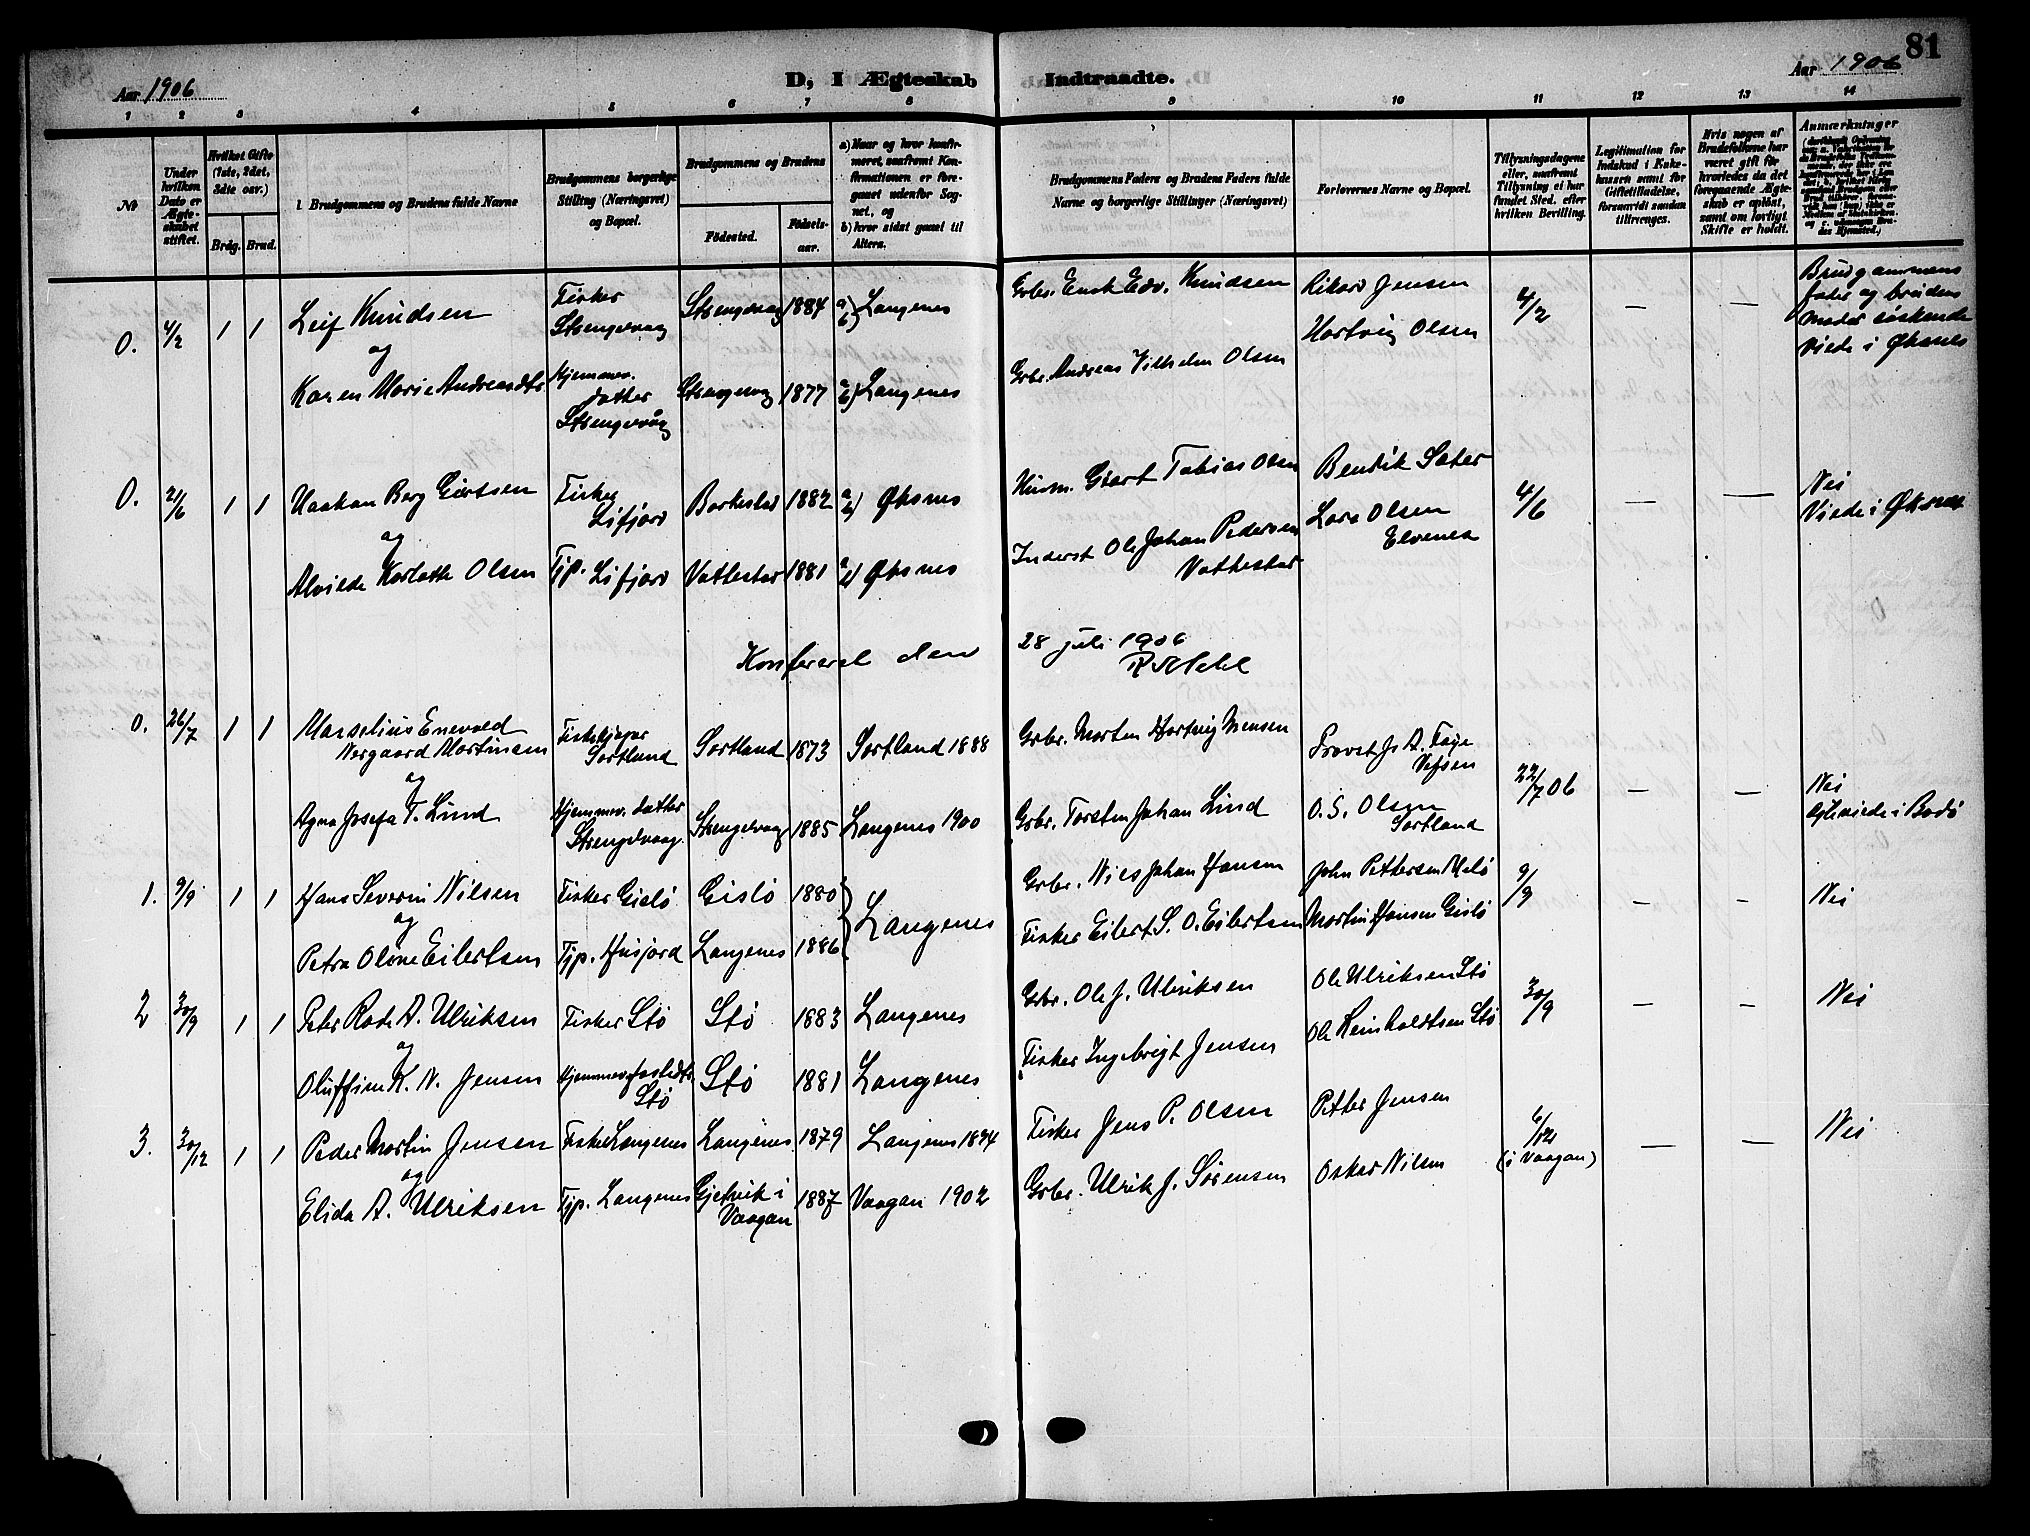 81
Aar 1906
D, I Ægteskab Indtraadte.
Aar 1906
1 2 3 4 5 6 7 8 9 10 11 12 13 14
No
Under hvilken Dato er Ægteskabet stiftet.
Hvilket Gifte (1ste, 2det, 3die osv.)
Brdg. Brud.
Brudgommens og Brudens fulde Navne
Brudgommens borgerlige Stilling (Næringsvei) og Bopæl.
Brudgommens og Brudens
Födested. Födsels-aar.
a) Naar og hvor konfirmeret, saafremt Konfirmationen er foregaaet udenfor Sognet, og
b) hvor sidst gaaet til Alters.
Brudgommens Faders og Brudens Faders fulde Navne og borgerlige Stillinger (Næringsvei)
Forlovernes Navne og Bopæl.
Tillysningsdagene eller, saafremt Tillysning ei har fundet Sted, efter hvilken Bevilling.
Legitimation for Indskud i Enkekassen samt for Giftetilladelse, forsaavidt saadan tiltrænges.
Hvis nogen af Brudefolkene har været gift för hvorledes da det foregaaende Ægteskab er oplöst, samt om lovligt Skifte er holdt.
Anmærkninger
0. 4/2 1 1 Leif Knudsen Fisker Strengelvaag Strengelvaag 1884 a) b) Langenes Grbr. Enok Edv. Knudsen Rikard Jensen 4/2 — — Brudgommens fader og brudens moder söskende Viede i Øksnes
og
Karen Marie Andreasdtr Hjemmev. datter Strengelvåg Strengelvaag 1877 a) b) Langenes Grbr. Andreas Vilhelm Olsen Hartvig Olsen
0. 21/6 1 1 Haakon Berg Giærtsen Fisker Lifjord Barkestad 1882 a) b) Øksnes Husm. Giært Tobias Olsen Bendik Sater 4/6 — — Nei Viede i Øksnes
og
Alvilde Karlotte Olsen Tjp. Lifjord Vottestad 1881 a) b) Øksnes Inderst Ole Johan Pedersen Vottestad Lars Olsen Elvenes
Konfereret den 28 juli 1906
0. 26/7 1 1 Marselius Enevold Nergaard Martinsen Fiskekjøper Sortland Sortland 1873 Sortland 1888 Grbr. Morten Hartvig Mensen Provst Js A. Faye Vefsen 22/7 06 — — Nei Egteviede i Bodö
og
Agna Josefa T. Lind Hjemmev. datter Strengelvaag Strengelvaag 1885 Langenes 1900 Grbr. Torsten Johan Lind O. S. Olsen Sortland
1. 9/9 1 1 Hans Severin Nilsen Fisker Gislö Gislö 1880 Langenes Grbr. Nils Johan Hansen John Pettersen Melö 9/9 — — Nei
og
Petra Olone Eilertsen Tjp. Husjord Langenes 1886 Fisker Eilert S. O. Eilertsen Martin Hansen Gislö
2 30/9 1 1 Peter Rode A. Ulriksen Fisker Stö Stö 1883 Langenes Grbr. Ole J. Ulriksen Ole Ulriksen Stö 30/9 — — Nei
og
Oluffine K. N. Jensen Hjemmev. fostedtr Stö Stö 1881 Langenes Fisker Ingebrigt Jensen Ole Reinholdtsen Stö
3. 30/12 1 1 Peder Martin Jensen Fisker Langenes Langenes 1879 Langenes 1894 Fisker Jens P. Olsen Petter Jensen 6/12 (i Vaagan) — — Nei
og
Elida A. Ulriksen Tjp. Langenes Gjetvik i Vaagan 1887 Vaagan 1902 Grbr. Ulrik J. Sörensen Oskar Nilsen